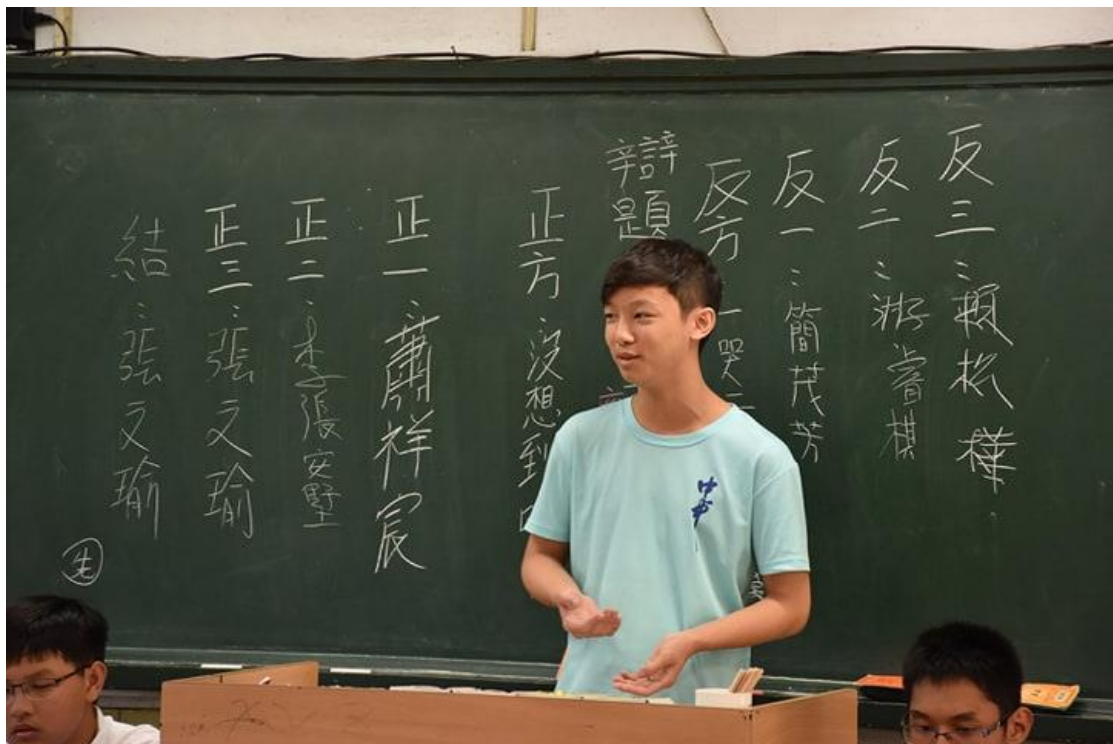 反三：賴松樺
反二：游睿棋
反一：簡茂芳
反方：一哭二
辯題
正方：沒想到
正一：蕭祥宸
正二：李張安墅
正三：張文瑜
結：張文瑜
先
中市